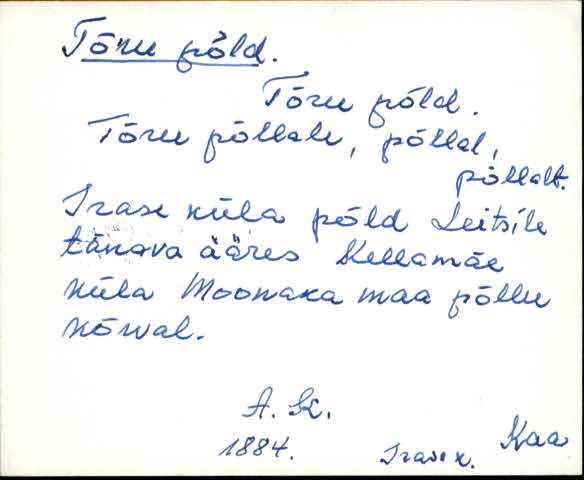 Tõru põld.
Tõru põld.
Tõru põllale, põllal,
põllalt.
Irase küla põld Leitsile
tänava ääres Kellamäe
küla Moonaka maa põllu
kõrval.
A. K.
1884.
Irase k.
Kaa